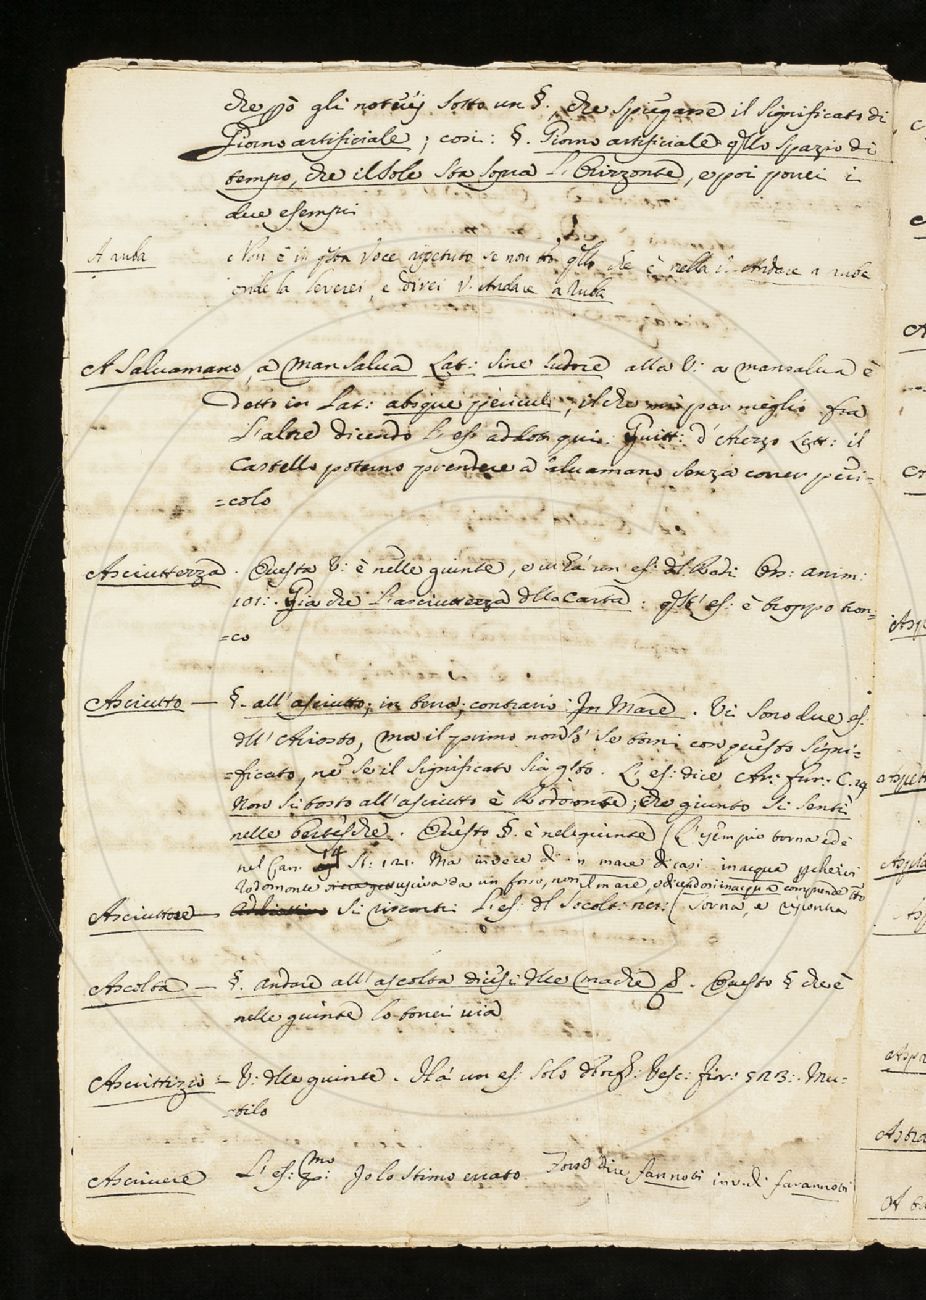 che però gli noterei sotto un §. che spiegasse il significato di
Giorno artificiale; così: §. Giorno artificiale qllo spazio di
tempo, che il sole sta sopra l'Orizzonte, e poi porrei i
due esempi
A ruba Non è in qsta Voce ripetuto se non qllo che è nella V. Andare a ruba
onde la leverei, e direi V. Andare a ruba
A Salvamano, a Man Salva Lat: sine sudore alla V: a mansalva è
detto in Lat: absque periculi, il che mi par meglio fra
l'altre dicendo l'es. addotto qui: Guitt: d'Arezzo Lett: il
Castello poterno prendere a salvamano senza correr peri-
=colo
Asciuttezza. Questa V: è nelle giunte, e vi ha un es: del Redi Oss: anim:
101: Già che l'asciuttezza dlla carta: qst' es: è troppo tron=
=co
Asciutto — §. all'asciutto; in terra; contrario: In Mare. Vi sono due es:
dll' Ariosto, ma il primo non so' se torni con questo signi-
=ficato, nè se il significato sia qsto. L'es: dice Ar: fur: C. 14
Non sì tosto all'asciutto è Rodomonte, che giunto si sentì
nelle bertesche. Questo §. è nelle giunte (L'esempio torna ed è
nel Can. 14 St: 121. Ma invece di in mare dicasi in acqua perchè ivi
Rodomonte usciva da un fosso, non il mare, e dicendosi in acqua comprende tto
Asciuttore Si riscontri l'es: dl Socolt: ner: (Torna, e riscontra
Ascolta — §. andare all'ascolta dicesi dlle Madre §. Questo § che è
nelle giunte lo torrei via
Ascrittizio = V: dlle giunte. Ha un es: solo Borgh: Vesc: Fior: 523: Mu-
=tilo
Ascrivere L'es: pmo: Io lo stimo errato Forse dice fannoti invece di farannoti